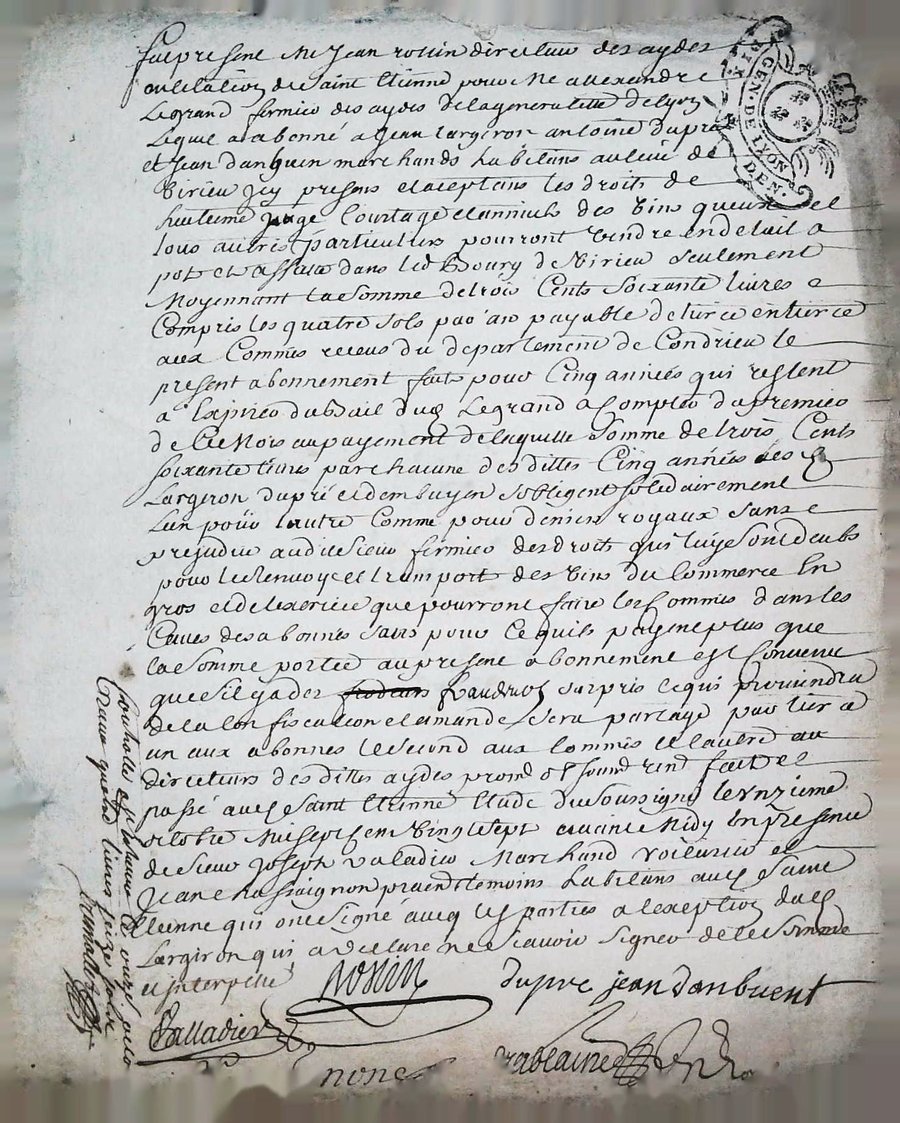 fut present Me Jean rossin directeur des aydes
en lelation de saint Etienne pour Me allexandre
Legrand fermier des aydes de la generallitté de lyon
Lequel a abonné a Jean largeron antoine dupré
et Jean danbuen marchands habitans au lieu de
Virieu Jcy presens et aceptans les droits de
huitieme Juge Courtage et annuels des Vins queux et
tous autres particuliers pourront Vendre en detail a
pot et assiete dans led Bourg de Virieu seulement
Moyennant la somme de trois Cents Soixante livres
Compris les quatre sols par an payable de tierce en tierce
aux Commis receus du departement de Condrieu le
present abonnement fait pour Cinq années qui restent
a Expirer du Bail dud Legrand a Compter du premier
de Ce Mois au payement de laquelle somme de trois Cents
soixante livres par chacune des dittes Cinq années les
Largeron dupré et dembuyen sobligent solidairement
Lun pour lautre Comme pour deniers royaux sans
prejudice audit sieur fermier des droits qui luy sont deubs
pour le renvoy et transport des Vins du Commerce En
gros et de lexercice que pourront faire les Commis dans les
Caves des abonnés sans pour Ce quils payent plus que
la somme portée au present abonnement est Convenu
que sil y a des fraudes surpris Ce qui proviendra
de la Confiscation et amande sera partagé par tier
un aux abonnes le second aux Commis et lautre au
directeurs des dittes aydes prom obl soum ren fait et
passé aud Saint Etienne Etude du soussigné le unzieme
octobre Mil sept cen Vingt sept avant Midy En presence
de sieur Joseph valadier Marchand voiturier et
Jean chassaignon praen temoins habitans aud Saint
Etienne qui ont signé avecq les parties a lexeption dud
Largiron qui a declaré ne scavoir signer de ce sommé
et interpellé
rossin
dupre jean danbuent
Valladier
GEN. DE LYON
DEN.